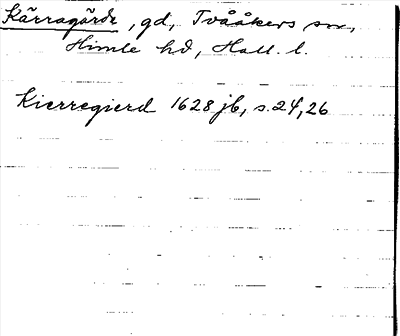 Kärragärde, gd, Tvååkers sn,
Himle hd, Hall. l.
Kierregierd 1628 jb, s. 24, 26